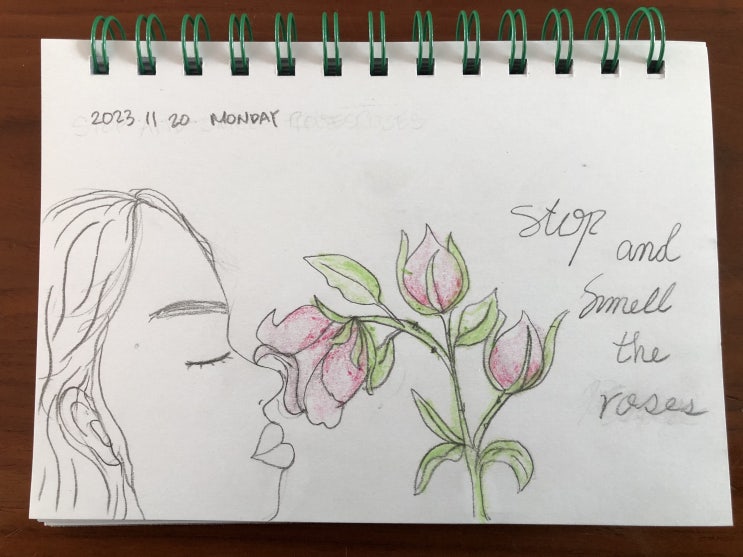 2023.11 20 MONDAY
Stop
and
Smell
the
roses